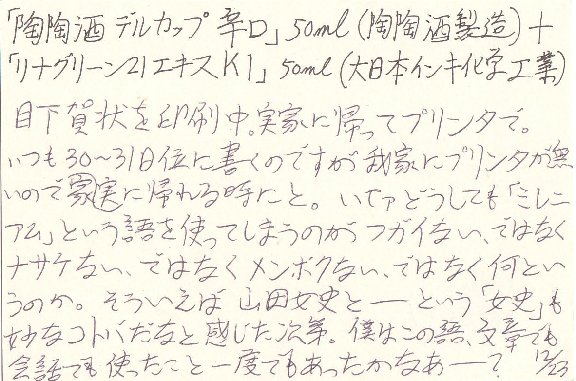 「陶陶酒 デルカップ 辛口」50ml (陶陶酒製造) +
「リナグリーン21エキスK1」50ml (大日本インキ化学工業)
目下賀状を印刷中。実家に帰ってプリンタで。
いつも30〜31日位に書くのですが我家にプリンタが無
いので実家に帰れる時にと。いやァどうしても「ミレニ
アム」という語を使ってしまうのがフガイない、ではなく
ナサケない、ではなくメンボクない、ではなく何とい
うのか。そういえば山田女史と――という「女史」も
妙なコトバだなと感じた次第。僕はこの語、文章でも
会話でも使ったこと一度でもあったかなあ――? 12/23